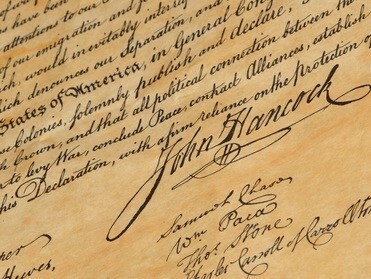 have been
attentions to our
of our emigration and
would inevitably
which denounces our Separation, and
States of America, in General Cong
Colonies, solemnly publish and declare,
Crown, and that all political connection between the
to levy War, conclude Peace, contract Alliances, establish
this Declaration, with a firm reliance on the Protection of
John Hancock
Samuel Chase
Wm Paca
Thos Stone
Charles Carroll of Carrollton